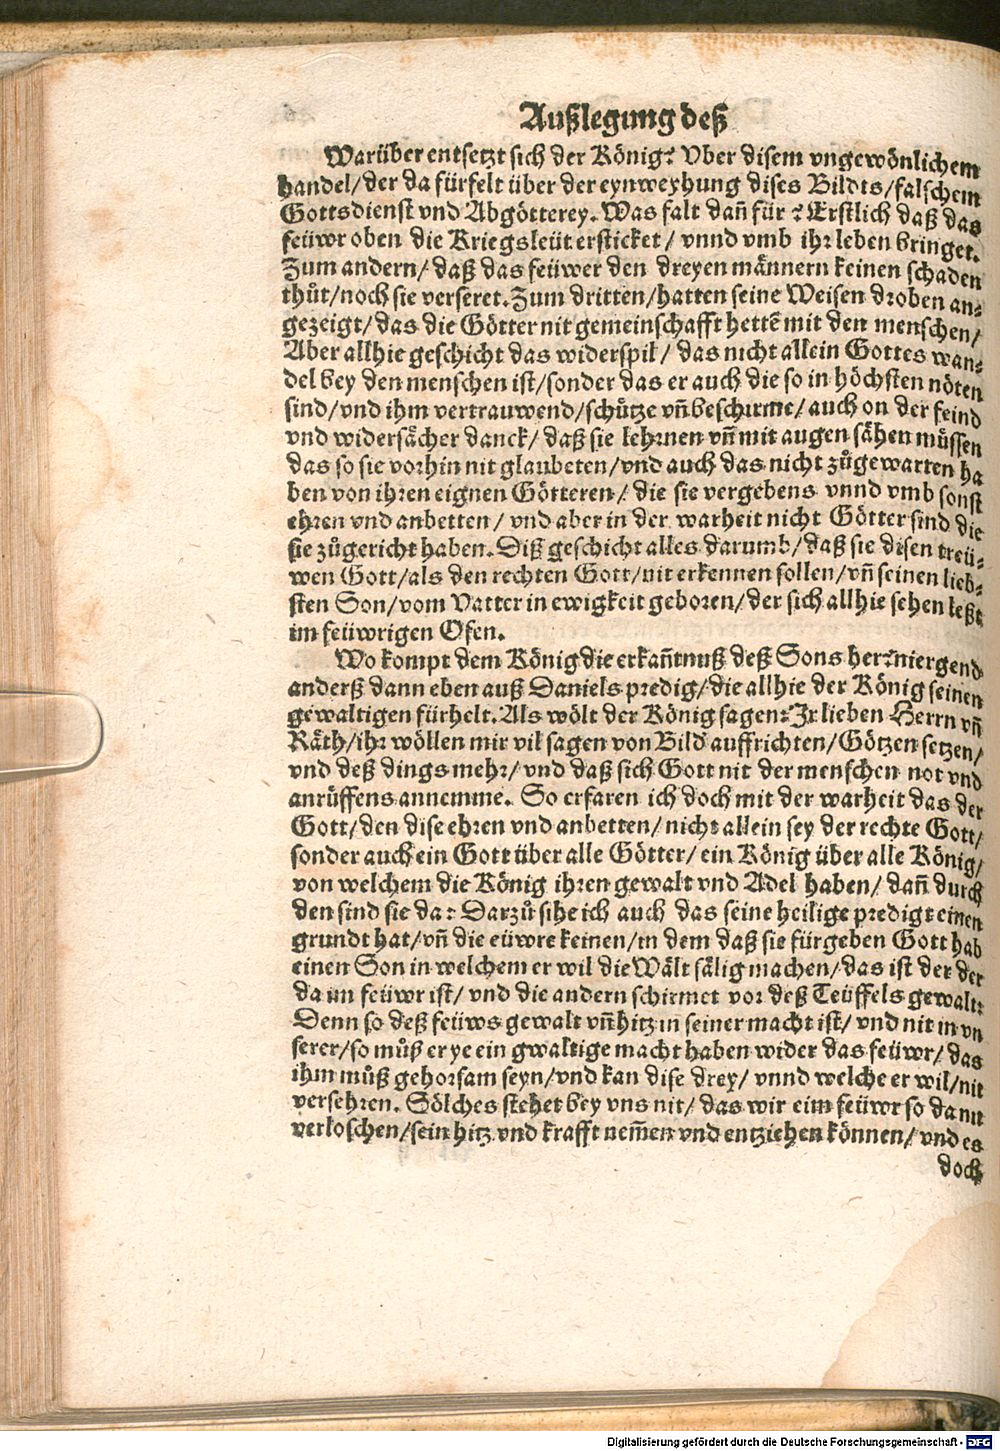 Außlegung deß
Warüber entsetzt sich der König? Vber disem vngewönlichem
handel/der da fürfelt über der eynweyhung dises Bildts/falschem
Gottsdienst vnd Abgötterey. Was falt dañ für? Erstlich daß das
feüwr oben die Kriegsleüt ersticket/ vnnd vmb ihr leben bringet.
Zum andern/ daß das feüwer den dreyen männern keinen schaden
thůt/noch sie verseret. Zum dritten/hatten seine Weisen droben an⸗
gezeigt/das die Götter nit gemeinschafft hettẽ mit den menschen/
Aber allhie geschicht das widerspil/ das nicht allein Gottes wan⸗
del bey den menschen ist/sonder das er auch die so in höchsten nöten
sind/vnd ihm vertrauwend/schütze vñ beschirme/ auch on der feind
vnd widersächer danck/ daß sie lehrnen vñ mit augen sähen müssen
das so sie vorhin nit glaubeten/vnd auch das nicht zůgewarten ha
ben von ihren eignen Götteren/ die sie vergebens vnnd vmb sonst
ehren vnd anbetten/ vnd aber in der warheit nicht Götter sind die
sie zůgericht haben. Diß geschicht alles darumb/ daß sie disen treü⸗
wen Gott/als den rechten Gott/nit erkennen sollen/vñ seinen lieb⸗
sten Son/vom Vatter in ewigkeit geboren/der sich allhie sehen leßt
im feüwrigen Ofen.
Wo kompt dem König die erkañtnuß deß Sons her? niergend
anderß dann eben auß Daniels predig/die allhie der König seinen
gewaltigen fürhelt. Als wölt der König sagen: Jr lieben Herrn vñ
Räth/ihr wöllen mir vil sagen von Bild auffrichten/Götzen setzen/
vnd deß dings mehr/ vnd daß sich Gott nit der menschen not vnd
anrüffens annemme. So erfaren ich doch mit der warheit das der
Gott/den dise ehren vnd anbetten/nicht allein sey der rechte Gott/
sonder auch ein Gott über alle Götter/ein König über alle König/
von welchem die König ihren gewalt vnd Adel haben/ dañ durch
den sind sie da: Darzů sihe ich auch das seine heilige predigt einen
grundt hat/vñ die eüwre keinen/in dem daß sie fürgeben Gott hab
einen Son in welchem er wil die Wält sälig machen/das ist der der
da im feüwr ist/ vnd die andern schirmet vor deß Teüffels gewalt:
Denn so deß feüws gewalt vñ hitz in seiner macht ist/ vnd nit in vn
serer/so můß er ye ein gwaltige macht haben wider das feüwr/ das
ihm můß gehorsam seyn/vnd kan dise drey/ vnnd welche er wil/nit
versehren. Sölches stehet bey vns nit/ das wir eim feüwr so da nit
verloschen/sein hitz vnd krafft nem̃en vnd entziehen können/ vnd es
doch
Digitalisierung gefördert durch die Deutsche Forschungsgemeinschaft - DFG